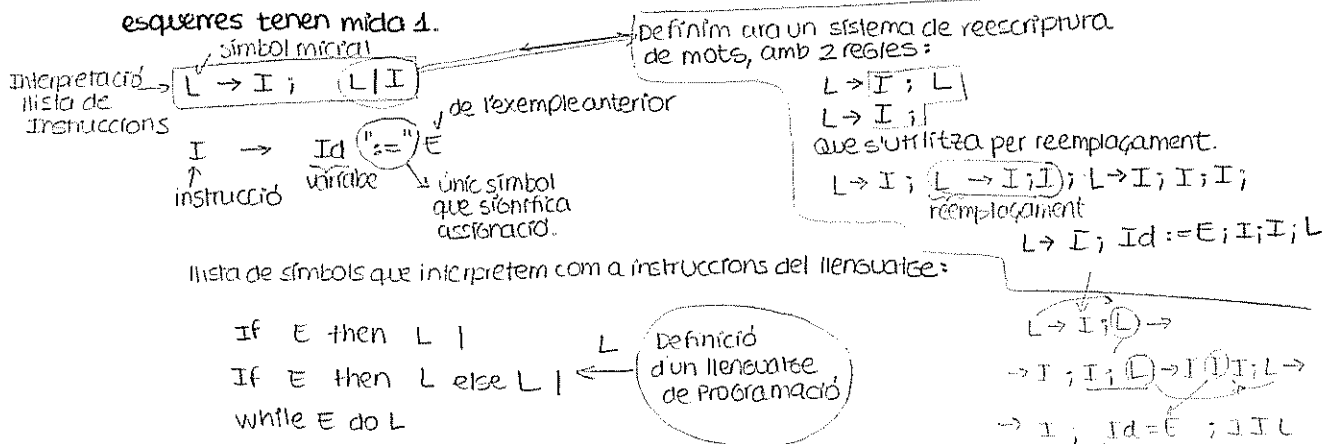 esquerres tenen mida 1.
símbol inicial
Interpretació
llista de
Instruccions
L → I ; L | I
de l'exemple anterior
I → Id ":=" E
instrucció
variable
únic símbol
que significa
assignació.
Definim ara un sistema de reescriptura
de mots, amb 2 regles:
L → I ; L
L → I ;
que s'utilitza per reemplaçament.
L → I ; L → I ; I ; L → I ; I ; I ;
reemplaçament
L → I ; Id := E ; I ; I ; L
llista de símbols que interpretem com a instruccions del llenguatge:
If E then L |
If E then L else L |
while E do L
L
Definició
d'un llenguatge
de programació
L → I ; L →
→ I ; I ; L → I I I ; L →
→ I ; Id = E ; I I L